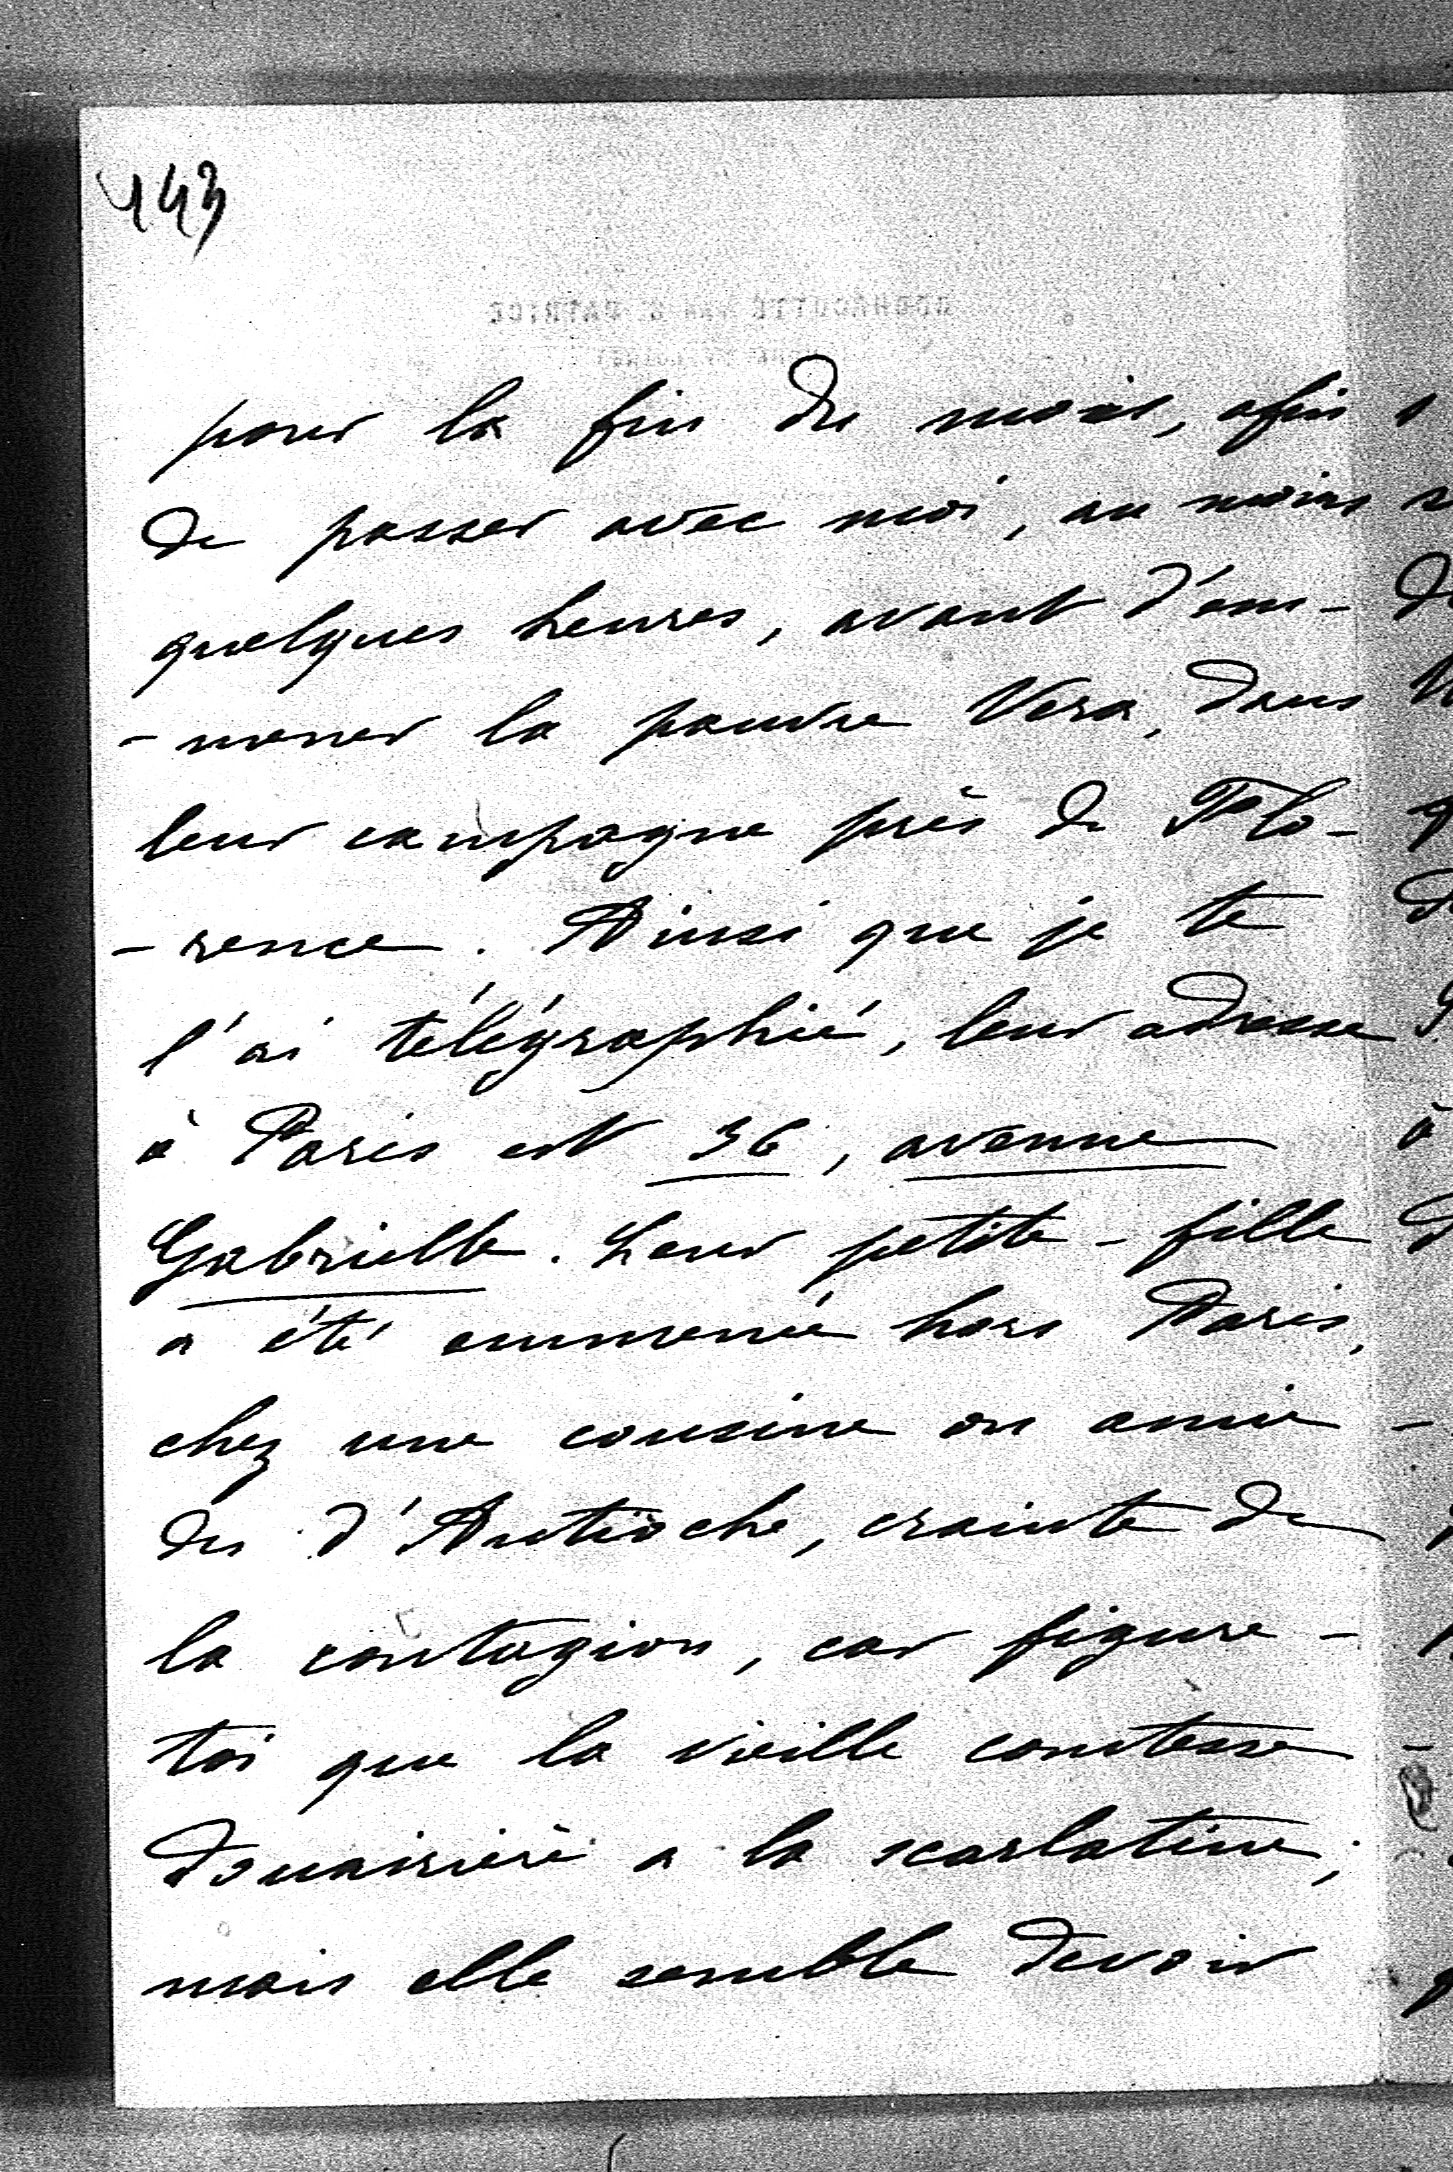 143
pour la fin du mois, afin
de passer avec moi, au moins
quelques heures, avant d'em-
-mener la pauvre Vera, dans
leur campagne près de Flo-
-rence. Ainsi que je te
l'ai télégraphié, leur adresse
à Paris est 36, avenue
Gabrielle. Leur petite-fille
a été emmenée hors Paris,
chez une cousine ou amie
des d'Antioche, crainte de
la contagion, car figure-
toi que la vieille comtesse
douairière a la scarlatine;
mais elle semble devoir